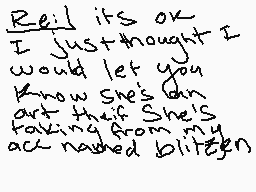 Reil its ok
I just thought I
would let you
know she's an
art theif She's
taking from my
acc named blitzen